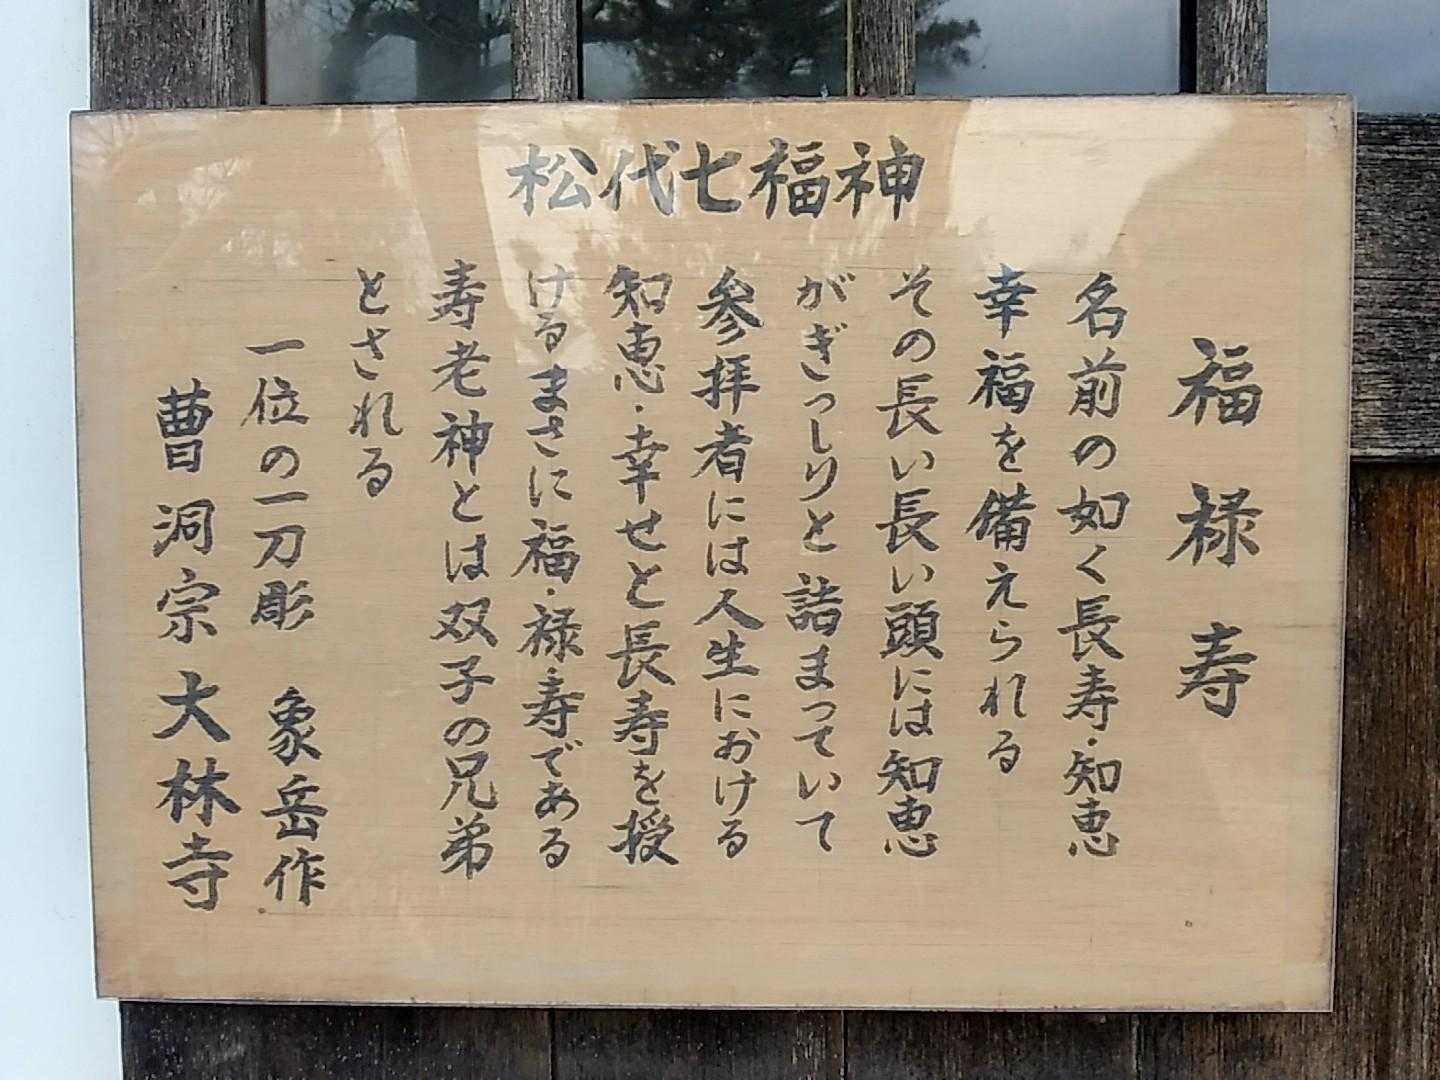 松代七福神
福禄寿
名前の如く長寿・知恵
幸福を備えられる
その長い長い頭には知恵
がぎっしりと詰まっていて
参拝者には人生における
知恵・幸せと長寿を授
けるまさに福・禄・寿である
寿老神とは双子の兄弟
とされる
一位の一刀彫 象岳作
曹洞宗大林寺